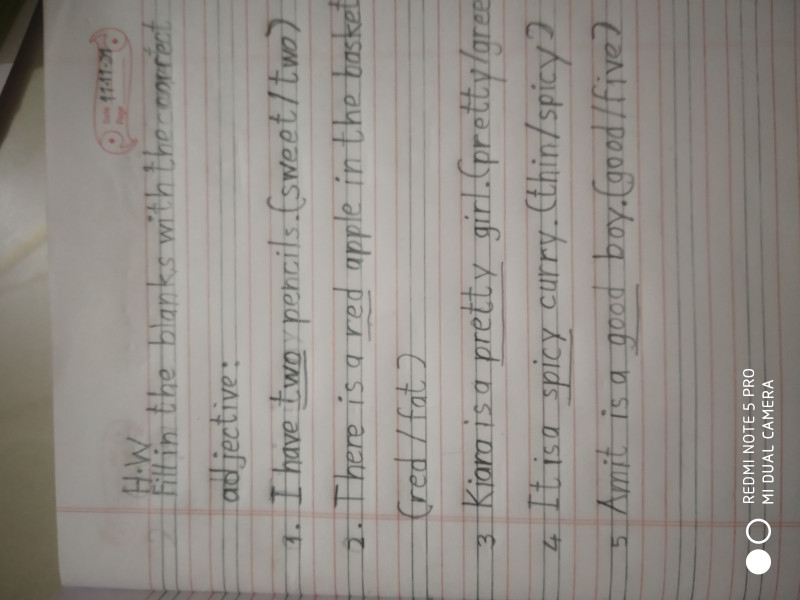 Date 11-11-21
Page
H.W
Fill in the blanks with the correct
adjective:
1. I have two pencils. (sweet/two)
2. There is a red apple in the basket
(red/fat)
3 Kiara is a pretty girl. (pretty/gree
4 It is a spicy curry. (thin/spicy)
5 Amit is a good boy. (good/five)
REDMI NOTE 5 PRO
MI DUAL CAMERA